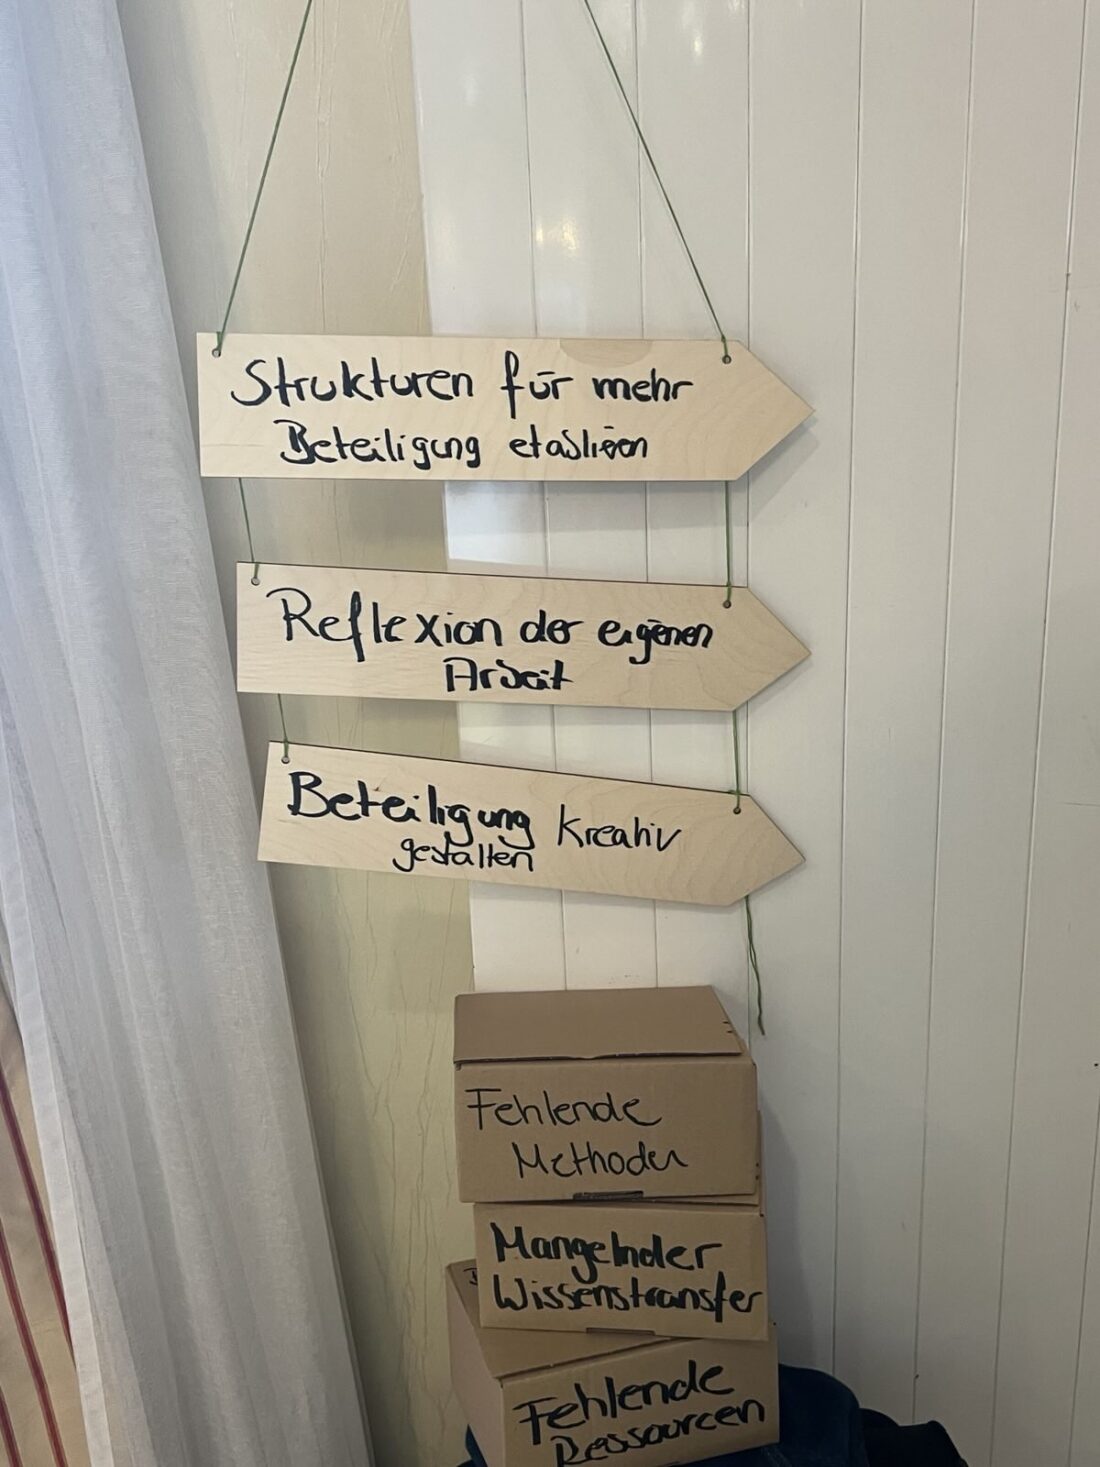 Strukturen für mehr
Beteiligung etablieren
Reflexion der eigenen
Arbeit
Beteiligung kreativ
gestalten
Fehlende
Methoden
Mangelnder
Wissenstransfer
Fehlende
Ressourcen